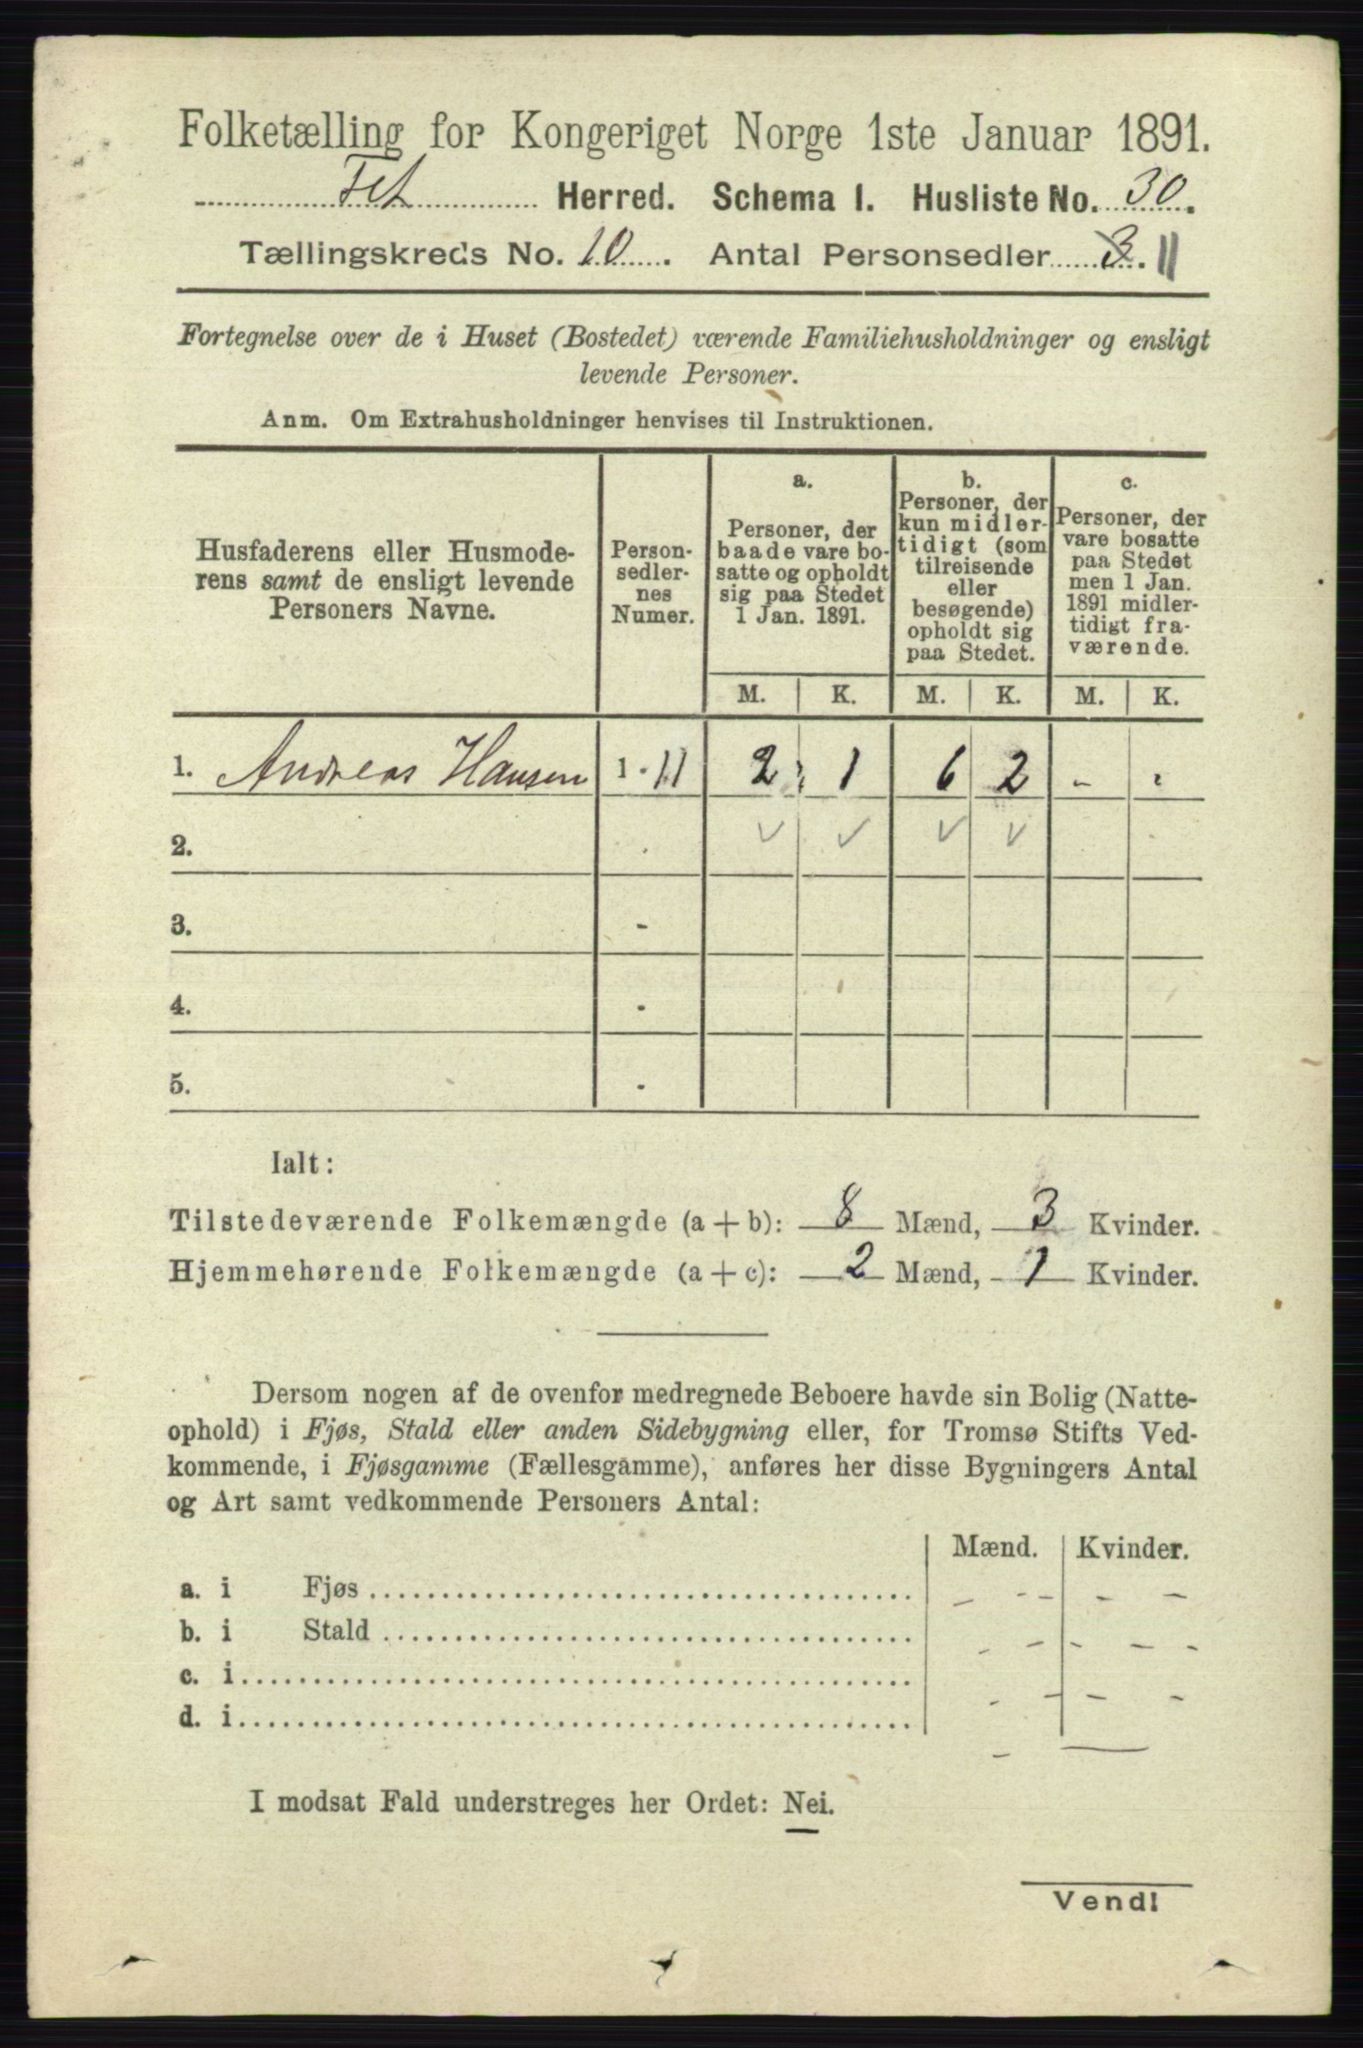 Folketælling for Kongeriget Norge 1ste Januar 1891.
Fet Herred. Schema I. Husliste No. 30.
Tællingskreds No. 10. Antal Personsedler 3. 11
Fortegnelse over de i Huset (Bostedet) værende Familiehusholdninger og ensligt
levende Personer.
Anm. Om Extrahusholdninger henvises til Instruktionen.
Husfaderens eller Husmode-
rens samt de ensligt levende
Personers Navne.
Person-
sedler-
nes
Numer.
a.
Personer, der
baade vare bo-
satte og opholdt
sig paa Stedet
1 Jan. 1891.
b.
Personer, der
kun midler-
tidigt (som
tilreisende
eller
besøgende)
opholdt sig
paa Stedet.
c.
Personer, der
vare bosatte
paa Stedet
men 1 Jan.
1891 midler-
tidigt fra-
værende.
M. K. M. K. M. K.
1. Andreas Hansen 1 - 11 2 1 6 2 - -
2. - ✓ ✓ ✓ ✓
3. -
4. -
5. -
Ialt:
Tilstedeværende Folkemængde (a + b): 8 Mænd, 3 Kvinder.
Hjemmehørende Folkemængde (a + c): 2 Mænd, 1 Kvinder.
Dersom nogen af de ovenfor medregnede Beboere havde sin Bolig (Natte-
ophold) i Fjøs, Stald eller anden Sidebygning eller, for Tromsø Stifts Ved-
kommende, i Fjøsgamme (Fællesgamme), anføres her disse Bygningers Antal
og Art samt vedkommende Personers Antal:
Mænd. Kvinder.
a. i Fjøs - - - -
b. i Stald - - - - -
c. i - - - -
d. i - -
I modsat Fald understreges her Ordet: Nei.
Vend!